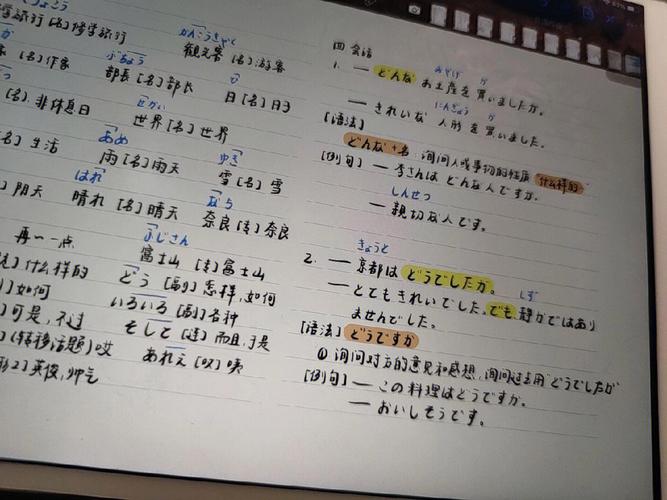 りょこう
学旅行 [名] 修学旅行
かんこうきゃく
観光客 [名] 游客
か
[名] 作家
ぶちょう
部長 [名] 部长
ひ
日 [名] 日子
[名] 非休息日
せかい
世界 [名] 世界
[名] 生活
あめ
雨 [名] 雨天
ゆき
雪 [名] 雪
阴天
はれ
晴れ [名] 晴天
なら
奈良 [专] 奈良
再一一点
ふじさん
富士山 [专] 富士山
什么样的
どう [副] 怎样, 如何
如何
いろいろ [副] 各种
可是, 不过
そして [连] 而且, 于是
(转移话题) 哎
あれえ [叹] 咦
英俊, 帅气
四 会话
みやげ か
1. — どんな お土産を買いましたか。
にんぎょう か
— きれいな 人形を買いました。
[语法]
どんな+名 询问人或事物的性质 "什么样的"
[例句] — 李さんは どんな人ですか。
しんせつ
— 親切な人です。
きょうと
2. — 京都は どうでしたか。
しず
— とてもきれいでした, でも, 静かではあり
ませんでした。
[语法] どうですか
① 询问对方的意见和感想, 询问过去用 "どうでしたか"
[例句] — この料理はどうですか。
— おいしそうです。